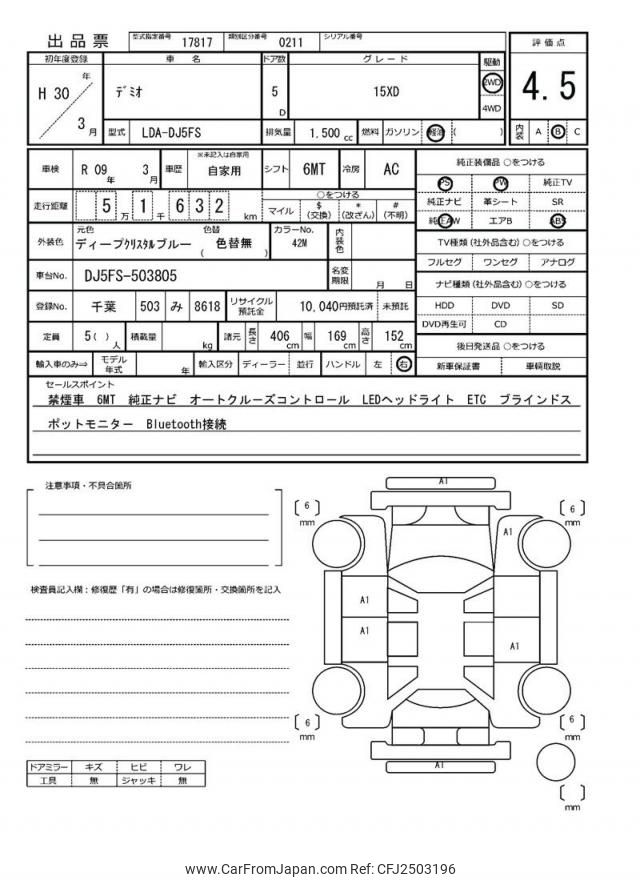 出品票 型式指定番号 17817 類別区分番号 0211 シリアル番号
初年度登録 車 名 ドア数 グレード 駆動 評価点
H 30 年 3 月 ﾃﾞﾐｵ 5 D 15XD 2WD 4WD 4.5
型式 LDA-DJ5FS 排気量 1,500 cc 燃料 ガソリン 軽油 ( ) 内装 A B C
車検 R 09 年 3 月 車歴 ※未記入は自家用 自家用 シフト 6MT 冷房 AC
走行距離 5 万 1 千 6 3 2 km ○をつける マイル $ (交換) * (改ざん) # (不明)
外装色 元色 ディープｸﾘｽﾀﾙブルー 色替 ( 色替無 ) カラーNo. 42M 内装色
車台No. DJ5FS-503805 名変期限 月 日
登録No. 千葉 503 み 8618 リサイクル預託金 10,040円預託済 未預託
定員 5 ( ) 人 積載量 kg 諸元 長さ 406 cm 幅 169 cm 高さ 152 cm
輸入車のみ⇒ モデル年式 年 輸入区分 ディーラー 並行 ハンドル 左 右
純正装備品 ○をつける
PS PW 純正TV
純正ナビ 革シート SR
純正AW エアB ABS
TV種類 (社外品含む) ○をつける
フルセグ ワンセグ アナログ
ナビ種類 (社外品含む) ○をつける
HDD DVD SD
DVD再生可 CD
後日発送品 ○をつける
新車保証書 車輌取説
セールスポイント
禁煙車 6MT 純正ナビ オートクルーズコントロール LEDヘッドライト ETC ブラインドス
ポットモニター Bluetooth接続
注意事項・不具合箇所
検査員記入欄：修復歴「有」の場合は修復箇所・交換箇所を記入
ドアミラー キズ ヒビ ワレ
工具 無 ジャッキ 無
A1
6 mm
6 mm
A1
A1
A1
A1
6 mm
6 mm
A1
mm
www.CarFromJapan.com Ref: CFJ2503196